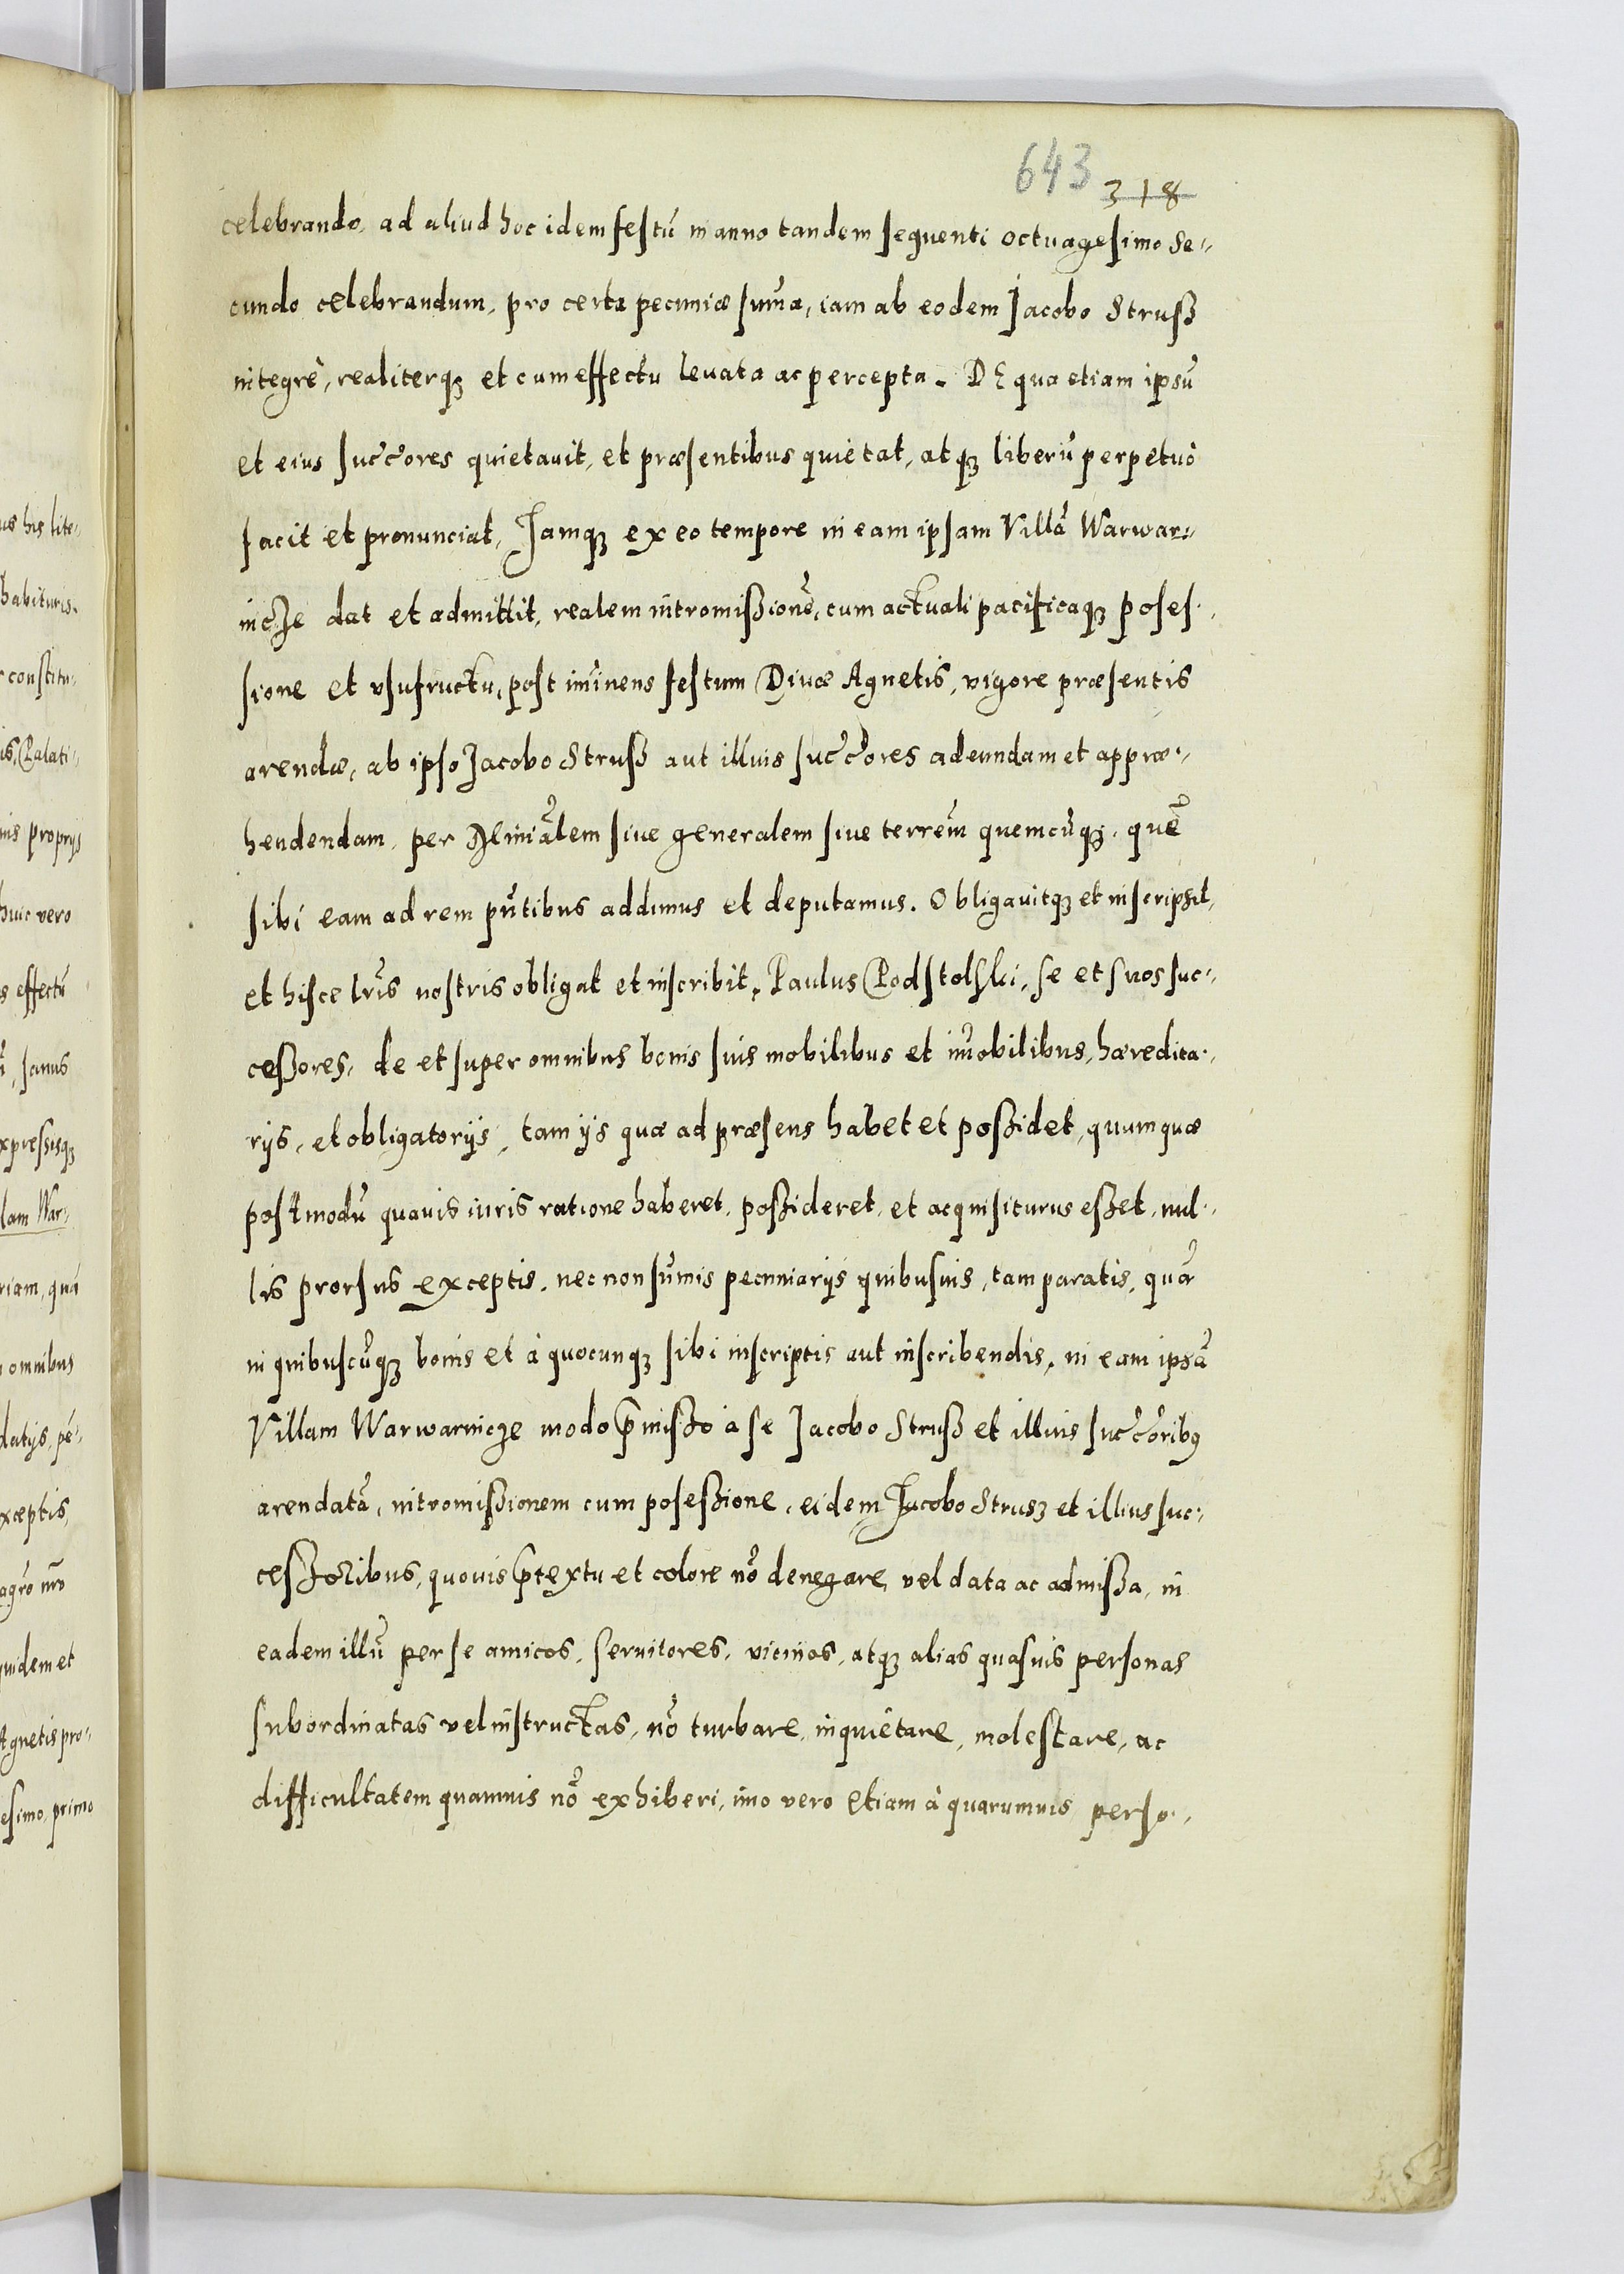 643 318
celebrando, ad aliud hoc idem festũ in anno tandem sequenti octuagesimo se⸗
cundo celebrandum, pro certa pecuniæ sum̃a, iam ab eodem Jacobo Struß
integrè, realiterq₃ et cum effectu leuata ac percepta. DE qua etiam ipsũ
et eius suc̃c̃ores quietauit, et præsentibus quietat, atq₃ liberũ perpetuò
facit et pronunciat, Jamq₃ ex eo tempore in eam ipsam Villã Warwar⸗
incze dat et admittit, realem intromißionẽ, cum actuali pacificaq₃ poses⸗
sione et vsufructu, post im̃inens festum Diuæ Agnetis, vigore præsentis
arendæ, ab ipso Jacobo Struß aut illuis suc̃c̃ores adeundam et appræ⸗
hendendam, per M̃iniãlem siue generalem siue terrẽm quemcũq₃, quẽ
sibi eam ad rem pñtibus addimus et deputamus. Obligauitq₃ et inscripsit,
et hisce lr̃is nostris obligat et inscribit, Paulus Podstolski, se et suos suc⸗
ceßores, de et super omnibus bonis suis mobilibus et im̃obilibus, hæredita⸗
rijs, et obligatorijs, tam ijs quæ ad præsens habet et poßidet, quum quæ
postmodũ quauis iuris ratione haberet, poßideret, et acquisiturus eßet, nul⸗
lis prorsus exceptis, nec non sum̃is pecuniarijs quibusuis, tam paratis, quã
in quibuscũq₃ bonis et à quocunq₃ sibi inscriptis aut inscribendis, in eam ipsã
Villam Warwarincze modo p̃mißo à se Jacobo Struß et illuis suc̃c̃oribꝰ
arendatã, intromißionem cum poseßione, eidem Jacobo Strusz et illius suc⸗
ceßoribus, quouis p̃textu et colore nõ denegare, vel data ac admißa, in
eadem illũ per se amicos, seruitores, vicinos, atq₃ alias quasuis personas
subordinatas vel instructas, nõ turbare, inquietare, molestare, ac
difficultatem quamuis nõ exhiberi, imo vero etiam à quarumuis perso⸗